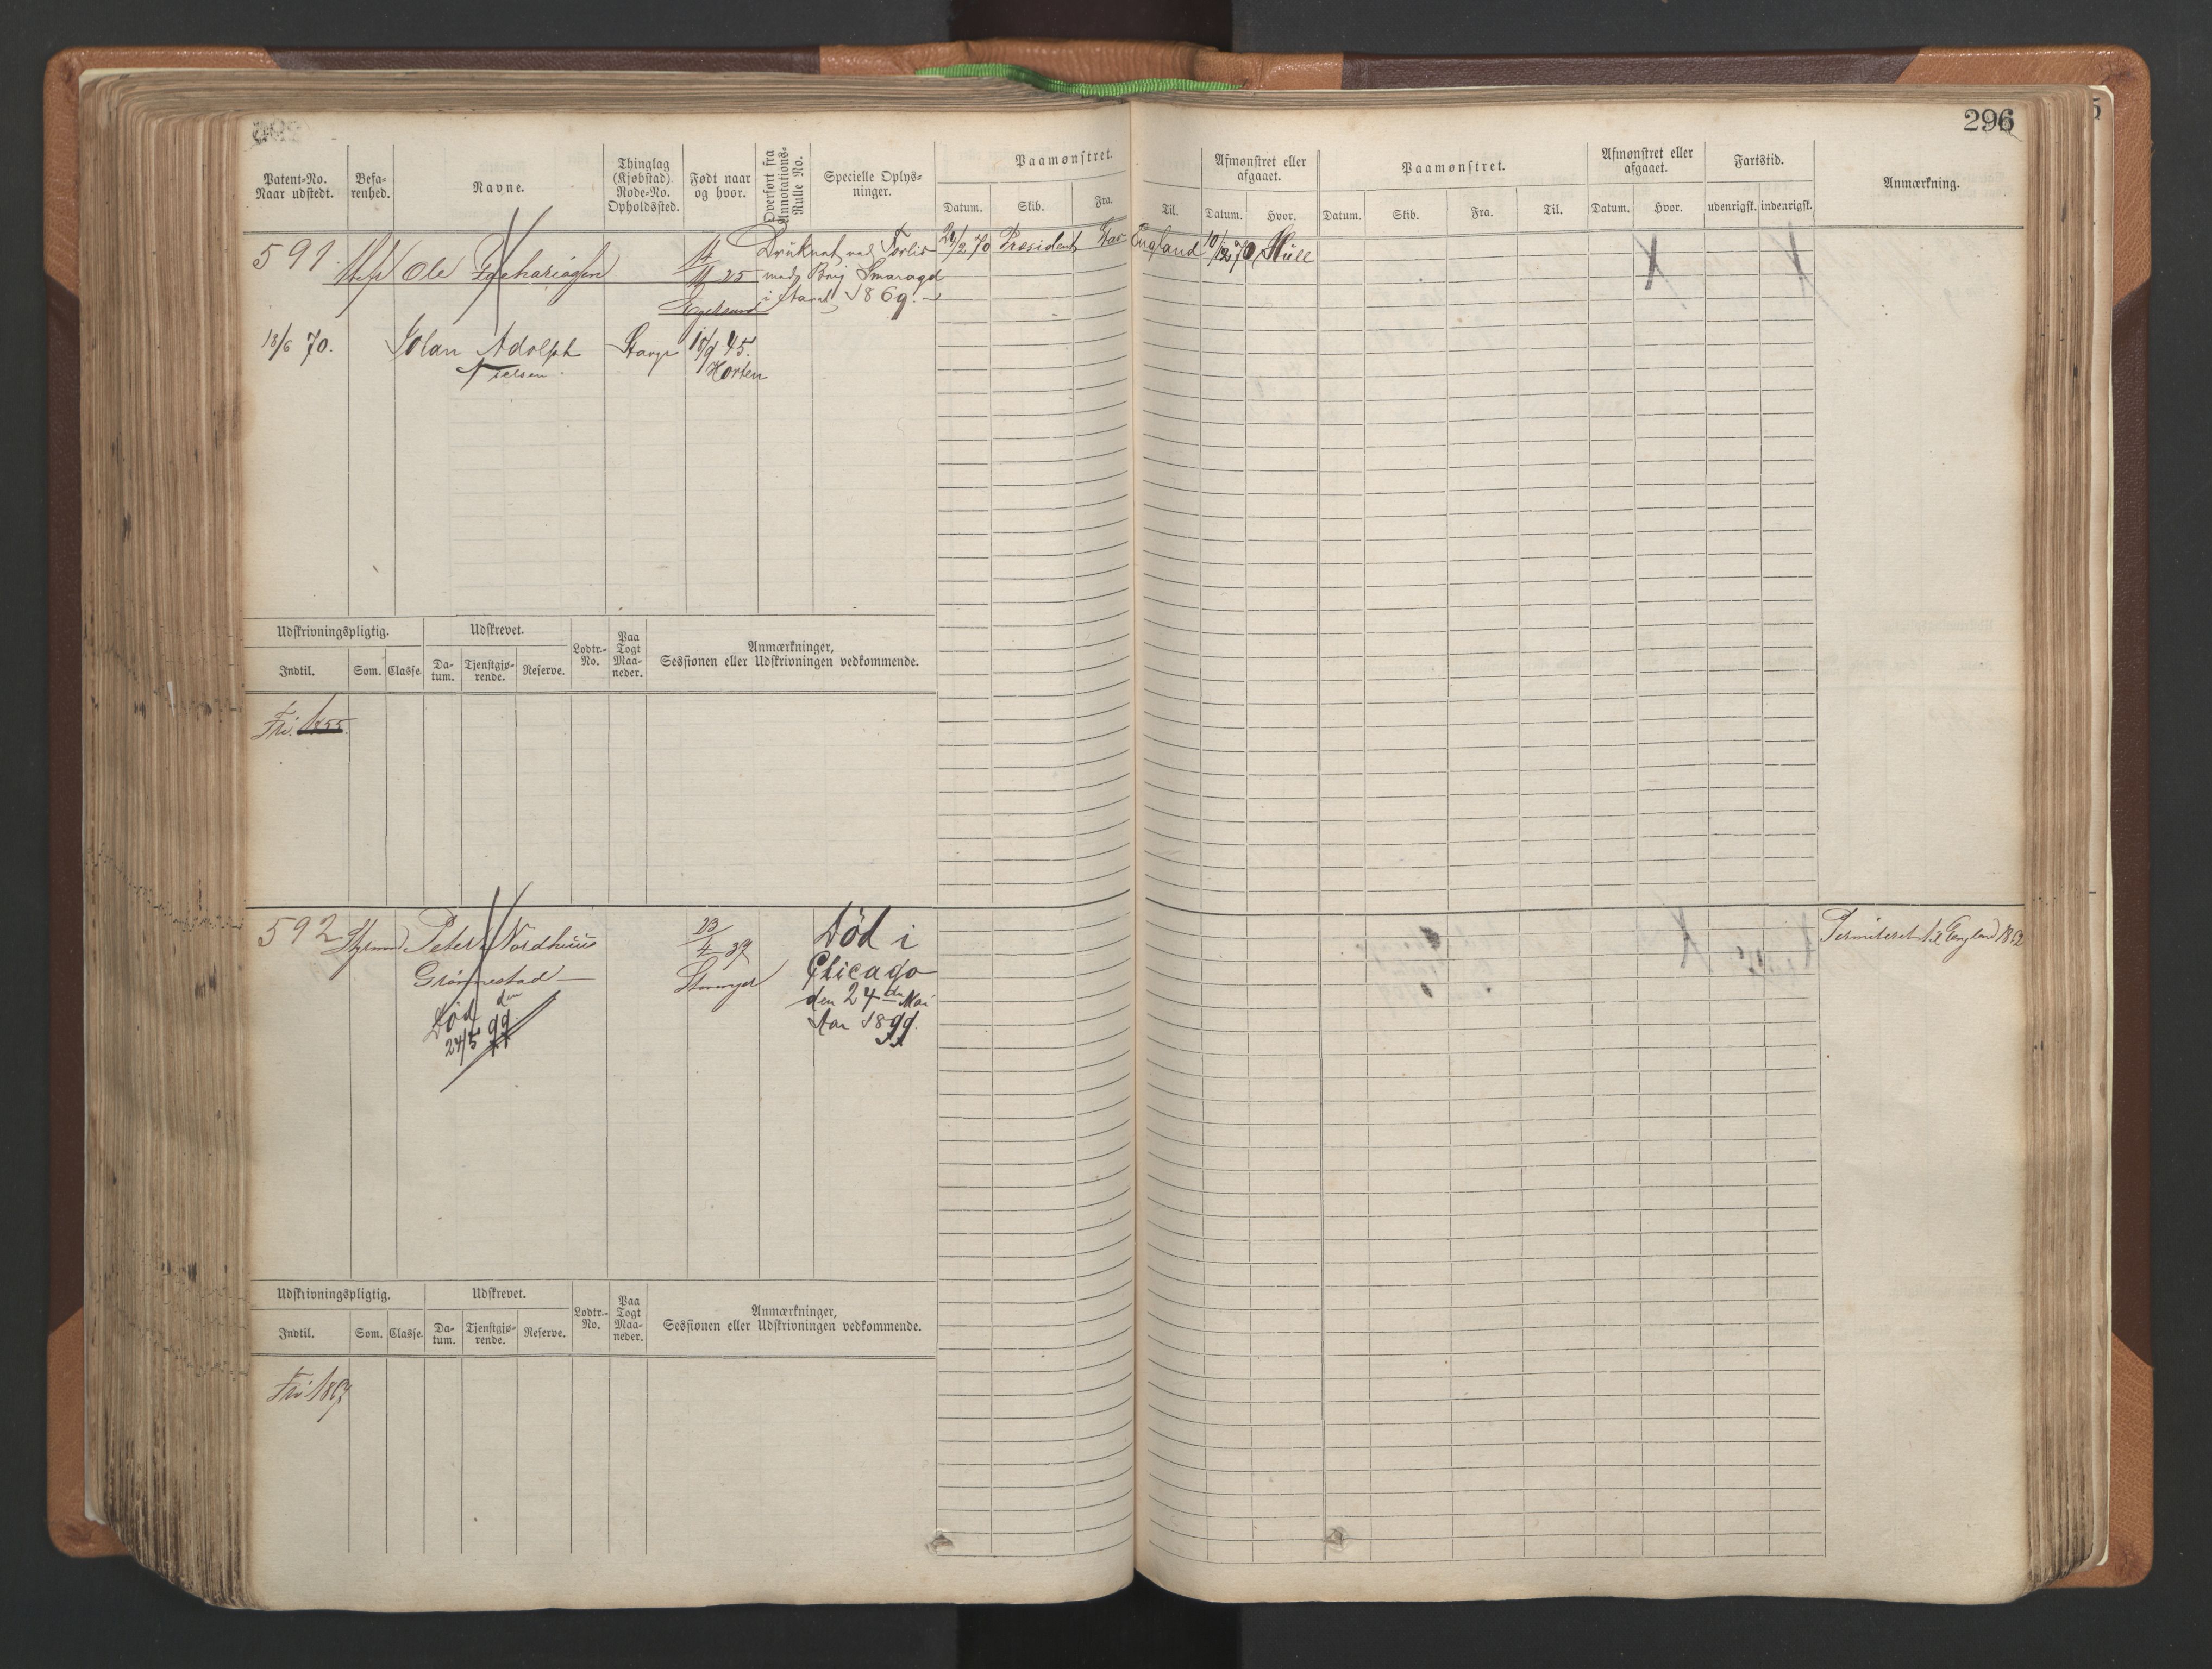 296
Patent=No. Naar udstedt.
Befa=renhed.
Navne.
Thinglag (Kjøbstad) Rode=No. Opholdssted.
Født naar og hvor.
Overført fra Annotations=Rulle No.
Specielle Oplys=ninger.
Paamønstret.
Datum. Skib. Fra. Til.
Afmønstret eller afgaaet.
Datum. Hvor.
Paamønstret.
Datum. Skib. Fra. Til.
Afmønstret eller afgaaet.
Datum. Hvor.
Fartstid.
udenrigsk. indenrigsk.
Anmærkning.
591. Ole Zachariassen
14/11 25
Egersund
Druknet ved Forlis
med Brig Smaragd
i 1869.
President Stav England 10/12 70 Hull
18/6 70. Adolph Stavgr 18/9 45.
Nielsen Horten
Udskrivningspligtig.
Indtil. Som. Classe.
Udskrevet.
Da=tum. Tjenstgjø=rende. Reserve.
Lodtr.=No.
Paa Togt Maa=neder.
Anmærkninger,
Sessionen eller Udskrivningen vedkommende.
Fri. 1855.
592 Styrmd Peter Nordhuus
Grønnestad
Død den
24/5 99.
23/4 39
Stavanger
Død i
Chicago
den 24de Mai
Aar 1899.
Permiteret til England
Udskrivningspligtig.
Indtil. Som. Classe.
Udskrevet.
Da=tum. Tjenstgjø=rende. Reserve.
Lodtr.=No.
Paa Togt Maa=neder.
Anmærkninger,
Sessionen eller Udskrivningen vedkommende.
Fri